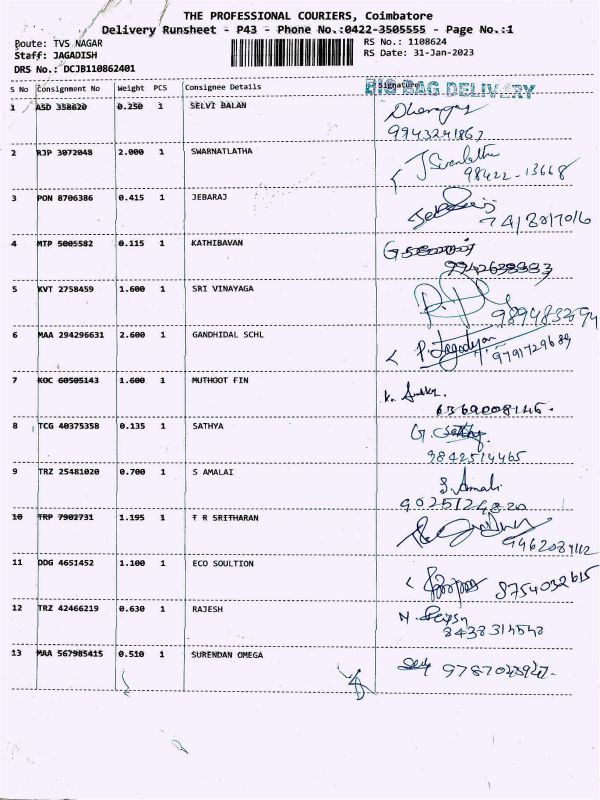 THE PROFESSIONAL COURIERS, Coimbatore
Delivery Runsheet - P43 - Phone No.:0422-3505555 - Page No.:1
Route: TVS NAGAR RS No.: 1108624
Staff: JAGADISH RS Date: 31-Jan-2023
DRS No.: DCJB110862401
S No Consignment No Weight PCS Consignee Details Signature BIG BAG DELIVERY
1 ASD 358620 0.250 1 SELVI BALAN
9943241867
2 RJP 3072048 2.000 1 SWARNATLATHA
98422-13668
3 PON 8706386 0.415 1 JEBARAJ
4 MTP 5005582 0.115 1 KATHIBAVAN
5 KVT 2758459 1.600 1 SRI VINAYAGA
6 MAA 294296631 2.600 1 GANDHIDAL SCHL
9791729689
7 KOC 60505143 1.600 1 MUTHOOT FIN
8 TCG 40375358 0.135 1 SATHYA G. Sathy
9842514465
9 TRZ 25481020 0.700 1 S AMALAI S. Amali
9025124820
10 TRP 7902731 1.195 1 T R SRITHARAN
11 DDG 4651452 1.100 1 ECO SOULTION 8754032615
12 TRZ 42466219 0.630 1 RAJESH
13 MAA 567985415 0.510 1 SURENDAN OMEGA